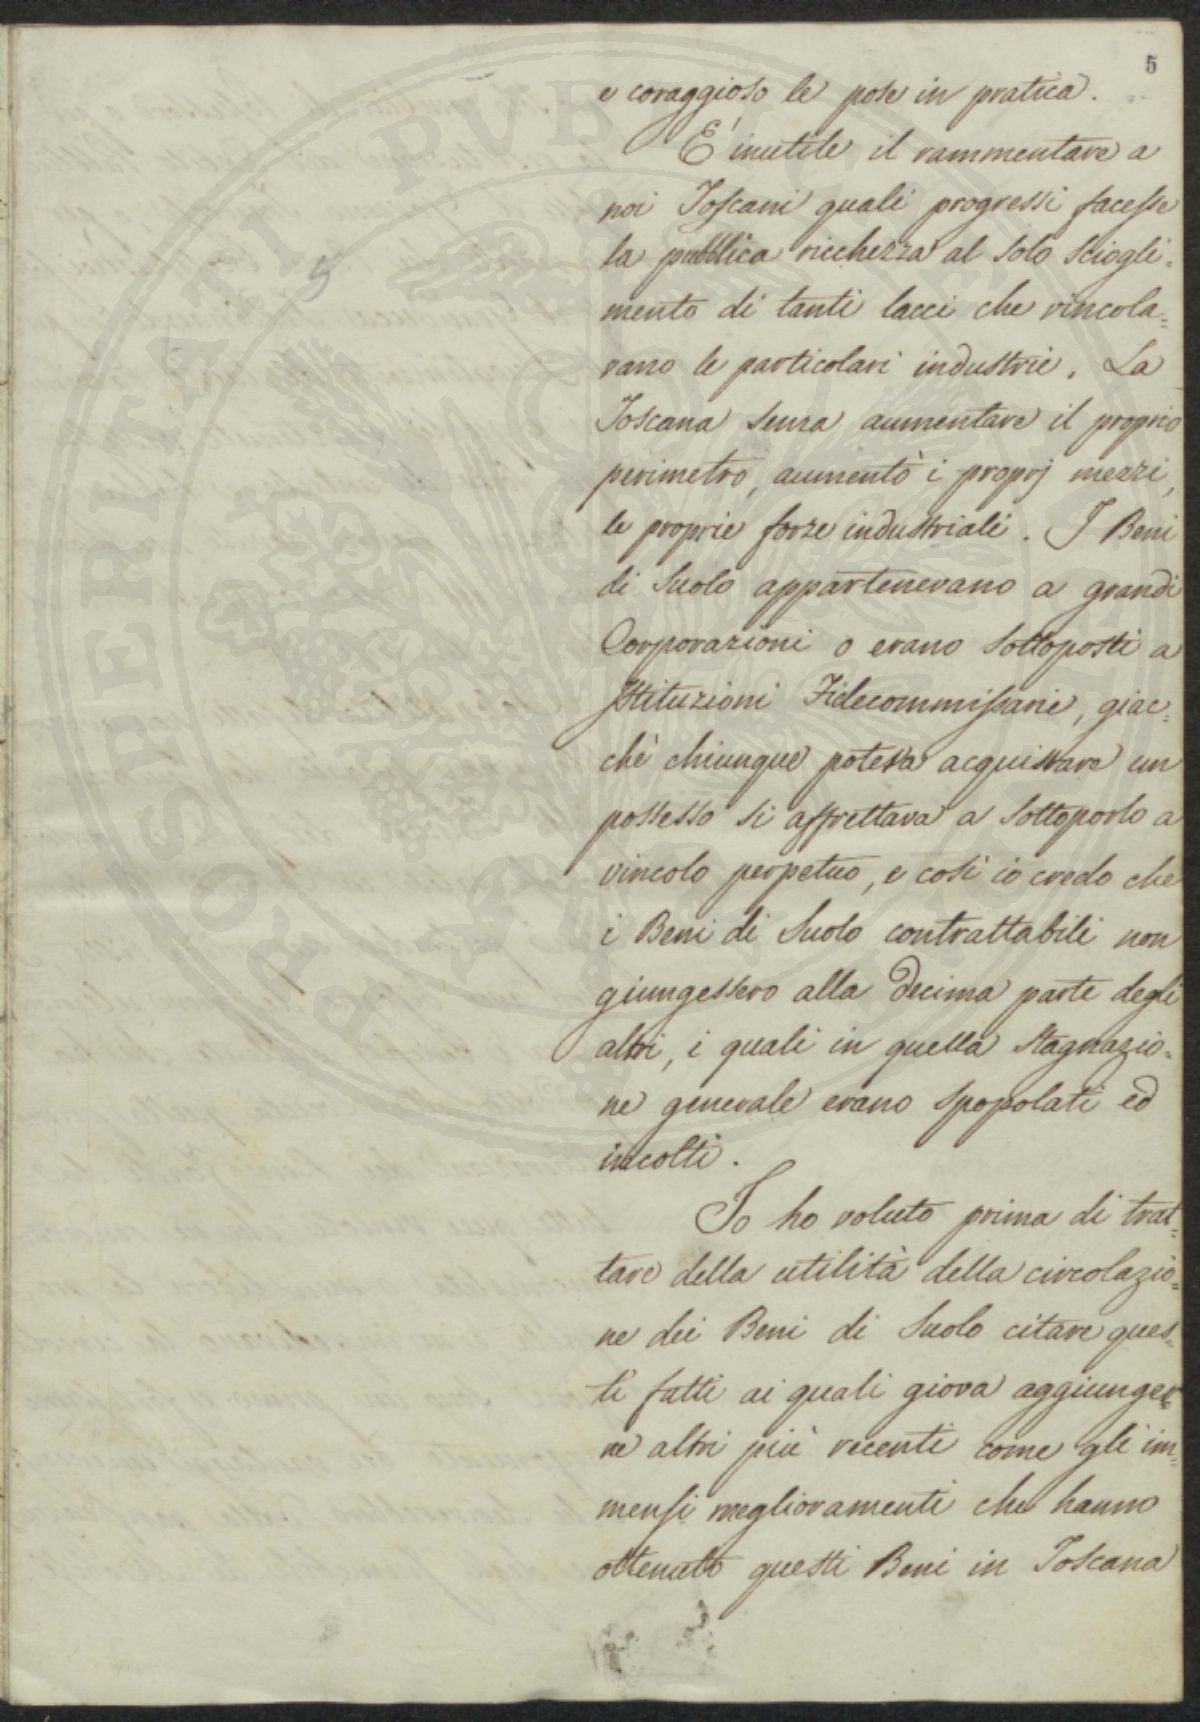 5
e coraggioso le pose in pratica.
E' inutile il rammentare a
noi Toscani quali progressi facesse
la pubblica ricchezza al solo sciogli=
mento di tanti lacci che vincola=
vano le particolari industrie. La
Toscana senza aumentare il proprio
perimetro, aumentò i proprj mezzi,
le proprie forze industriali. I Beni
di Suolo appartenevano a grandi
Corporazioni o erano sottoposti a
Istituzioni Fidecommissarie, giac=
chè chiunque poteva acquistare un
possesso si affrettava a sottoporlo a
vincolo perpetuo, e così io credo che
i Beni di Suolo contrattabili non
giungessero alla decima parte degli
altri, i quali in quella stagnazio=
ne generale erano spopolati ed
incolti.
Io ho voluto prima di trat=
tare della utilità della circolazio=
ne dei Beni di Suolo citare ques=
ti fatti ai quali giova aggiunger=
ne altri più recenti come gli im=
mensi miglioramenti che hanno
ottenuto questi Beni in Toscana
5
PROSPERITATI PUBLICAE